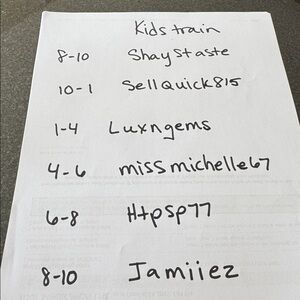 Kids train
8-10 ShayStaste
10-1 SellQuick815
1-4 Luxngems
4-6 missmichelle67
6-8 Htpsp77
8-10 Jamiiez